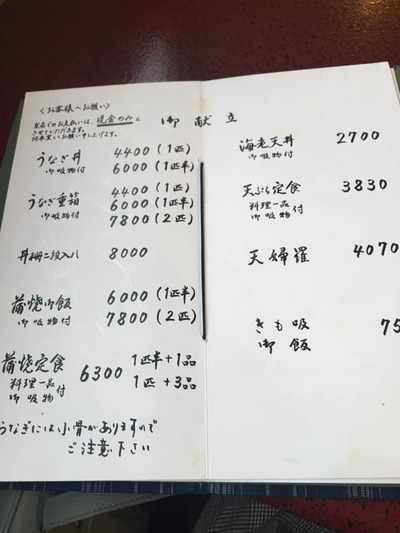 〈お客様へお願い〉
当店でのお支払いは、現金のみと
させていただきます。
何卒宜しくお願い申し上げます。
御献立
うなぎ丼 4400(1匹)
御吸物付 6000(1匹半)
4400(1匹)
うなぎ重箱 6000(1匹半)
御吸物付 7800(2匹)
丼 二段入れ 8000
蒲焼御飯 6000(1匹半)
御吸物付 7800(2匹)
蒲焼定食 6300 1匹半+1品
料理一品 1匹+3品
御吸物付
うなぎには小骨がありますので
ご注意下さい
海老天丼 2700
御吸物付
天ぷら定食 3830
料理一品
御吸物付
天婦羅 4070
きも吸 75
御飯